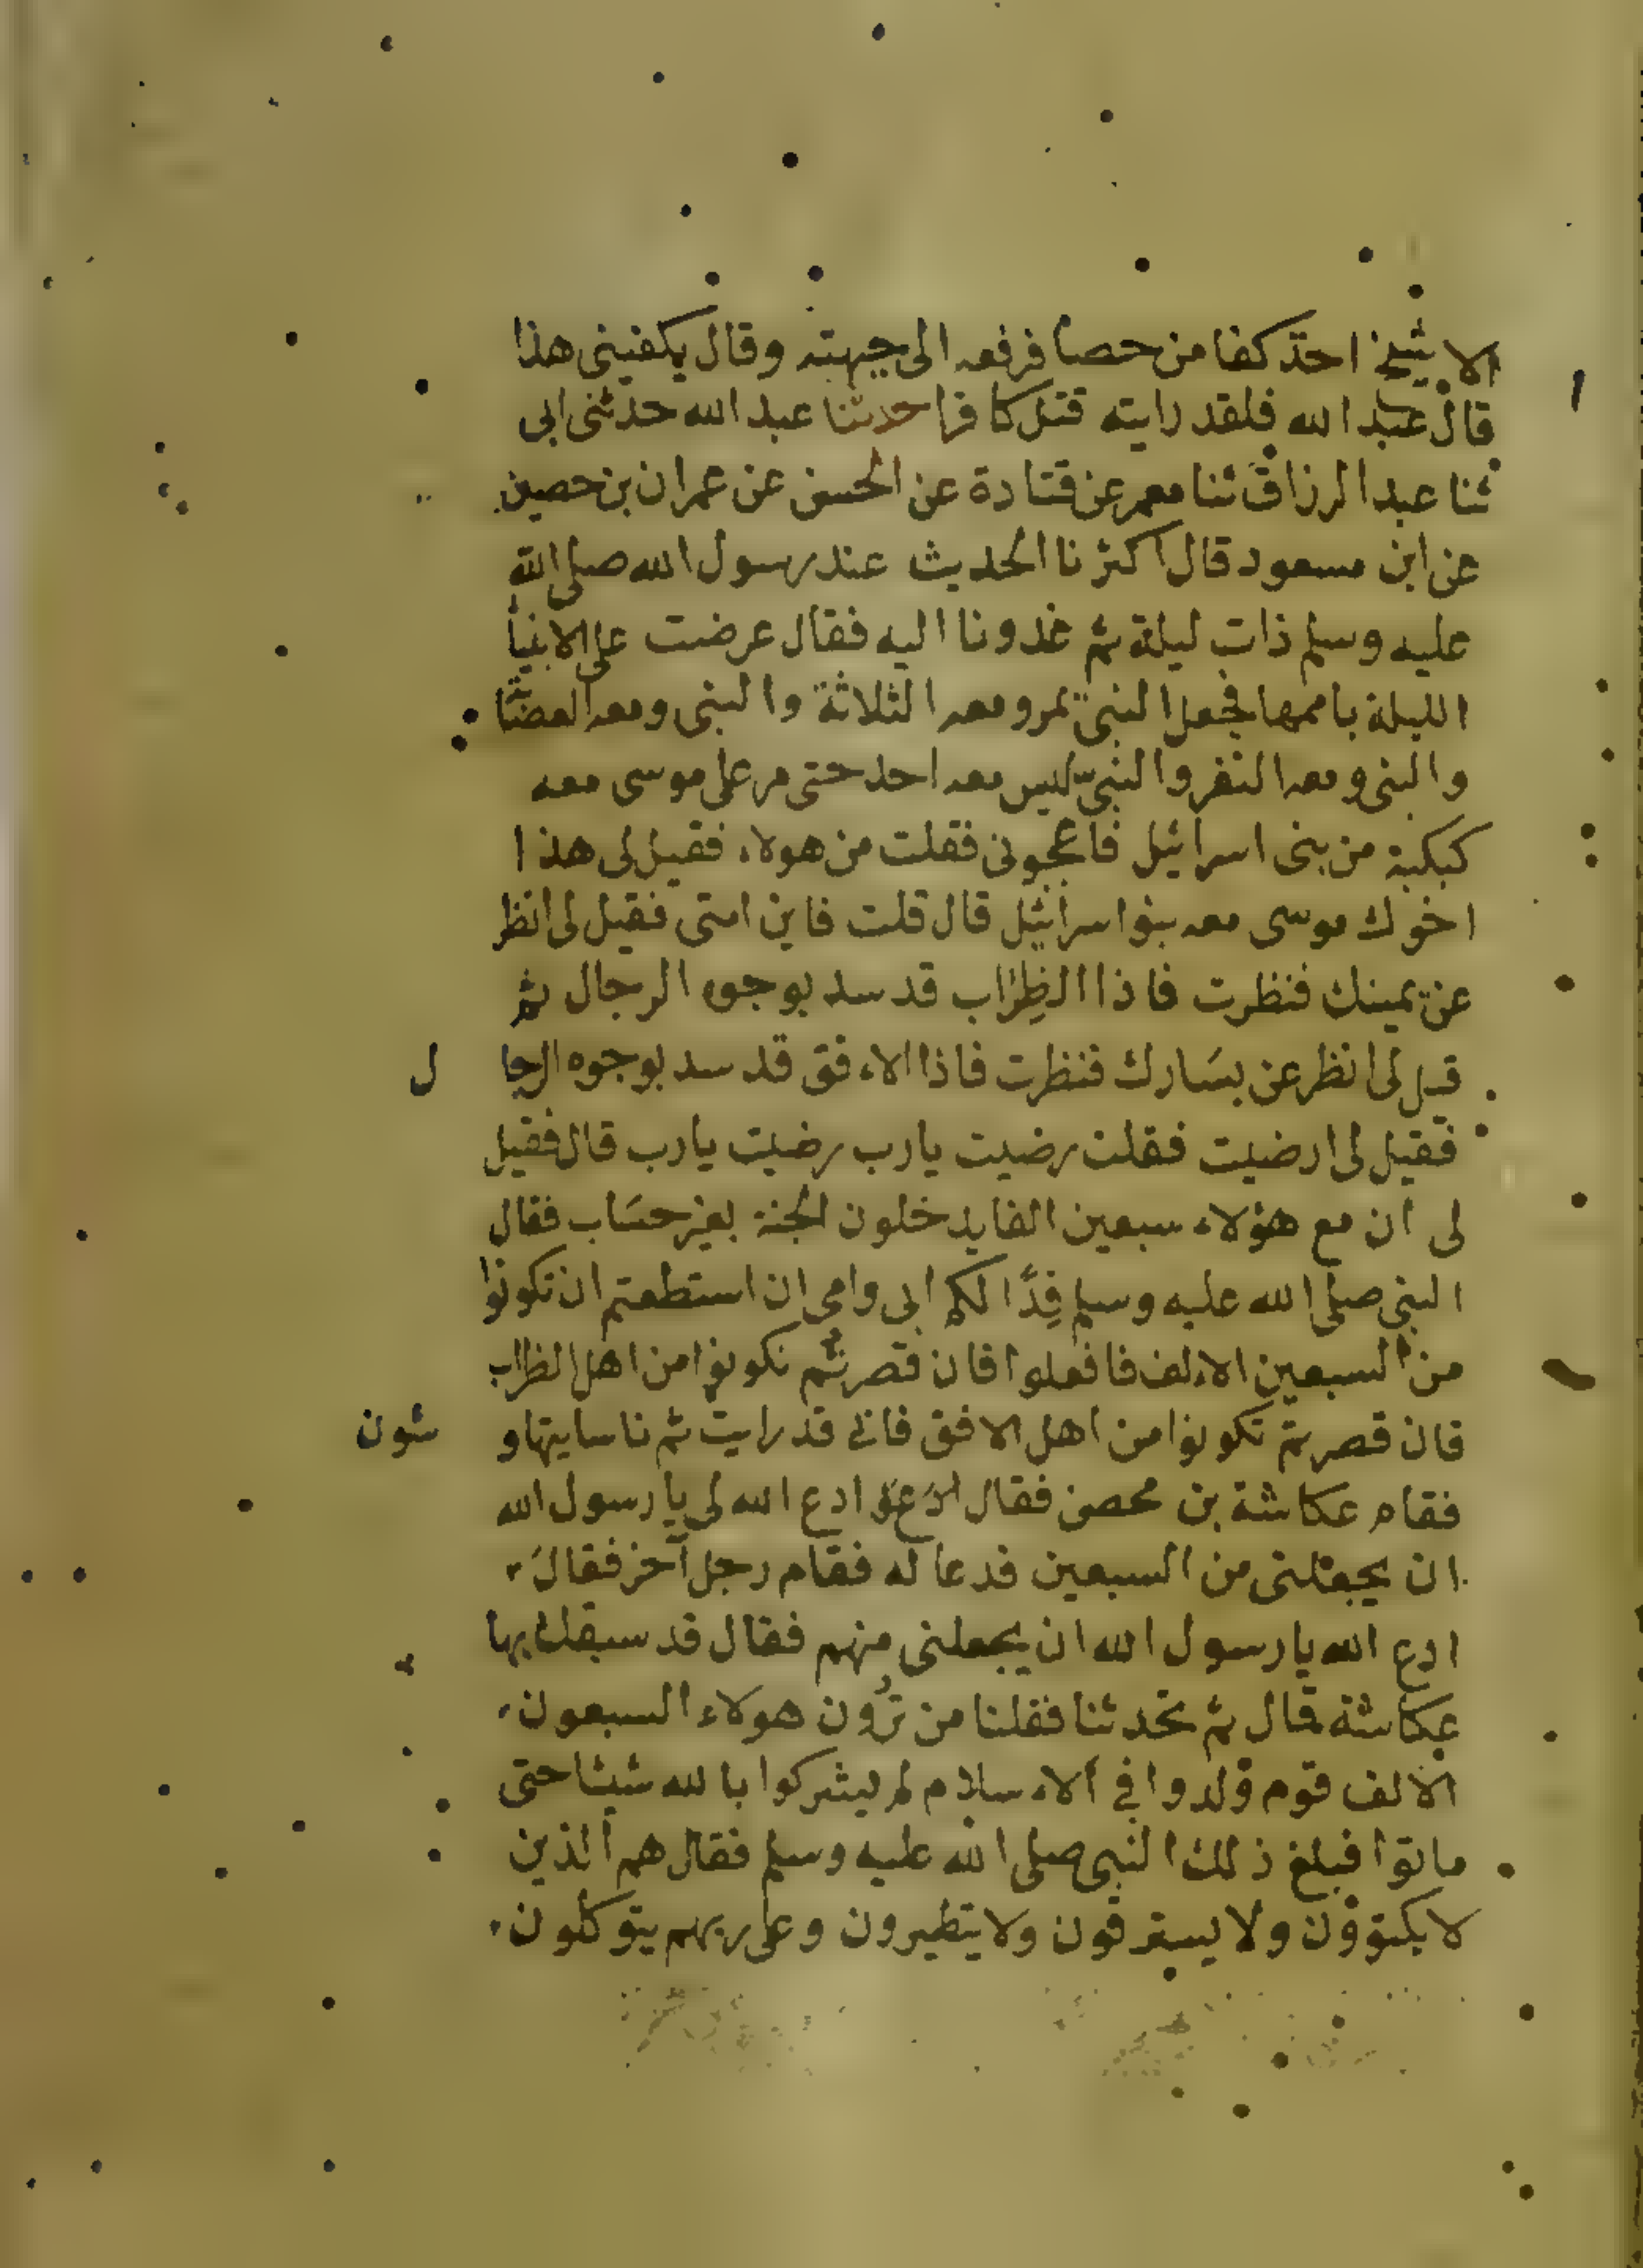 الا شيخ اخذ كفا من حصا فرفعه الى جبهته وقال يكفيني هذا
قال عبد الله فلقد رايته قتل كافرا حدثنا عبد الله حدثني ابي
ثنا عبد الرزاق ثنا معمر عن قتادة عن الحسن عن عمران بن حصين
عن ابن مسعود قال اكثرنا الحديث عند رسول الله صلى الله
عليه وسلم ذات ليلة ثم غدونا اليه فقال عرضت على الانبيا
الليلة باممها فجعل النبي يمر ومعه الثلاثة والنبي ومعه العصابة
والنبي ومعه النفر والنبي ليس معه احد حتى مر على موسى معه
كبكبة من بنى اسرائيل فاعجبونى فقلت من هولاء فقيل لى هذا
اخوك موسى معه بنوا سرائيل قال قلت فاين امتى فقيل لى انظر
عن يمينك فنظرت فاذا الظِراب قد سد بوجوه الرجال ثم
قيل لى انظر عن يسَارك فنظرت فاذا الاءفق قد سد بوجوه الرجا ل
فقيل لى ارضيت فقلت رضيت يارب رضيت يارب قال فقيل
لى ان مع هؤلاء سبعين الفا يدخلون الجنة بغير حسَاب فقال
النبى صلى الله عليه وسلم فِدًا لكم ابى وامى ان استطعتم ان تكونوا
من السبعين الاءلف فافعلوا فان قصرتم نكونوا من اهل الظراب
فان قصرتم تكونوا من اهل الافق فانى قد رايت ثم ناسا يتهاو شون
فقام عكاشة بن محصن فقال ادع الله لى يا رسول الله
ان يجعلنى من السبعين فدعا له فقام رجل آخر فقالَ
ادع الله يا رسول الله ان يجعلنى منهم فقال قد سبقك بها
عكاشة قال ثم تحدثنا فقلنا من ترُون هولاء السبعون
الالف قوم ولدوا في الاءسلام لم يشركوا بالله شيئا حتى
ماتوا فبلغ ذلك النبى صلى الله عليه وسلم فقال هم الذين
لا يكتوون ولا يسترقون ولا يتطيرون وعلى ربهم يتوكلون